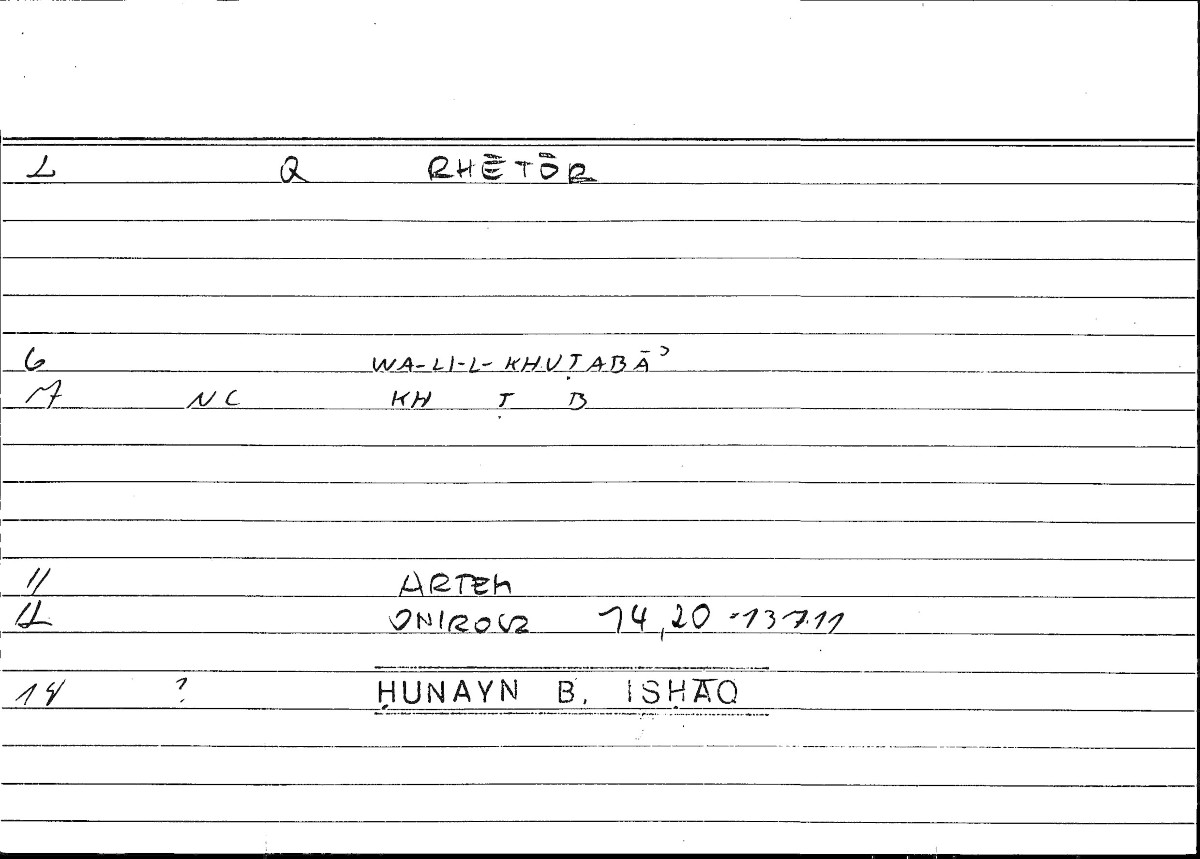 2 Q RHĒTŌR
6 WA-LI-L-KHUṬABĀʾ
7 NC KH Ṭ B
11 ARTEM
12 ONIROCR 14,20
14 ? ḤUNAYN B. ISḤĀQ